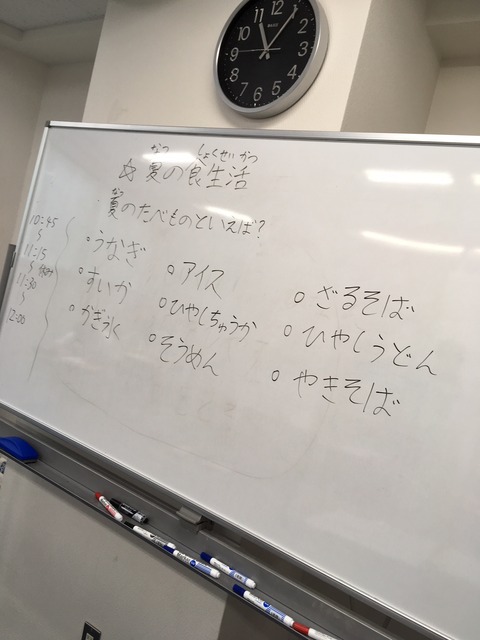 12
1
2
3
4
5
6
7
8
9
10
11
なつ しょくせいかつ
☆夏の食生活
なつ
夏のたべものといえば?
10:45
〜
11:15
〜 休み
11:30
〜
12:00
・うなぎ
・すいか
・かき氷
○アイス
○ひやしちゅうか
○そうめん
○ざるそば
○ひやしうどん
○やきそば